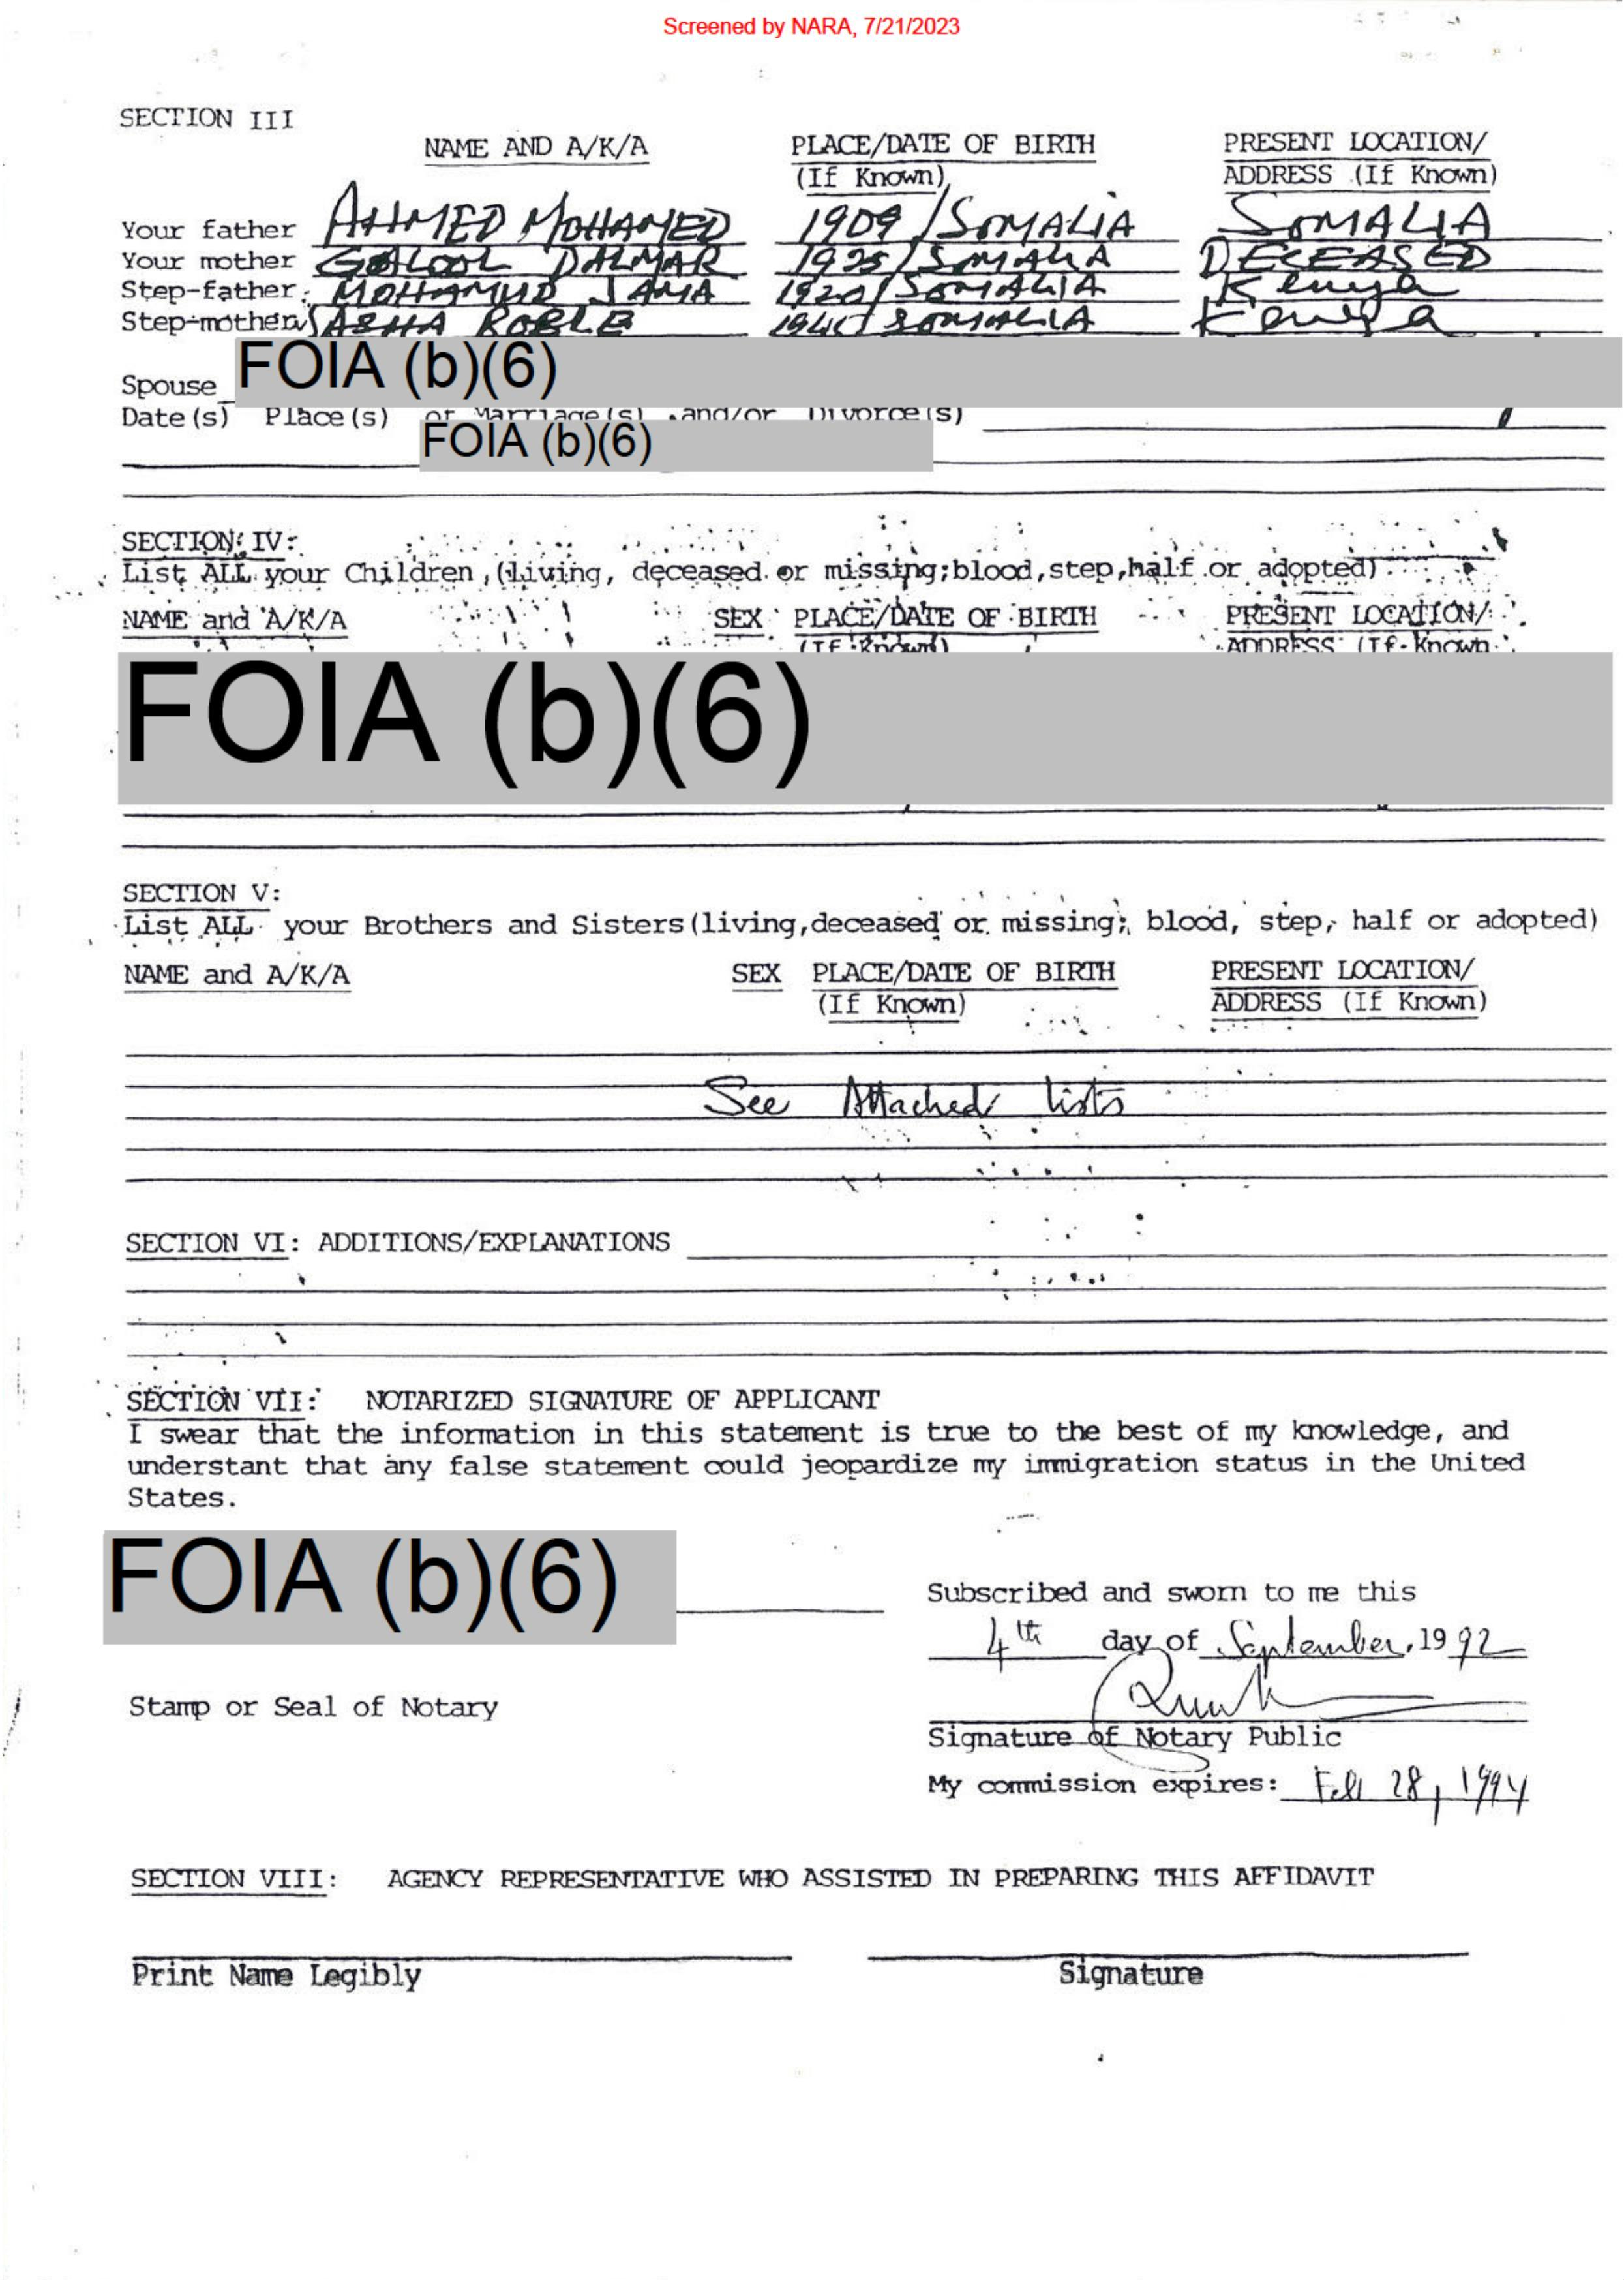 Screened by NARA, 7/21/2023
SECTION III
NAME AND A/K/A PLACE/DATE OF BIRTH PRESENT LOCATION/
(If Known) ADDRESS (If Known)
Your father AHMED MOHAMED 1909/SOMALIA SOMALIA
Your mother DALMAR 1925/SOMALIA DECEASED
Step-father: MOHAMUD JAMA 1920/SOMALIA Kenya
Step-mother ASHA ROBLE SOMALIA Kenya
Spouse FOIA (b)(6)
Date(s) Place(s) of Marriage(s) and/or Divorce(s)
FOIA (b)(6)
SECTION IV:
List ALL your Children, (living, deceased or missing;blood,step,half or adopted)
NAME and A/K/A SEX PLACE/DATE OF BIRTH PRESENT LOCATION/
(If Known) ADDRESS (If Known
FOIA (b)(6)
SECTION V:
List ALL your Brothers and Sisters(living,deceased or missing; blood, step, half or adopted)
NAME and A/K/A SEX PLACE/DATE OF BIRTH PRESENT LOCATION/
(If Known) ADDRESS (If Known)
See Attached lists
SECTION VI: ADDITIONS/EXPLANATIONS
SECTION VII: NOTARIZED SIGNATURE OF APPLICANT
I swear that the information in this statement is true to the best of my knowledge, and
understant that any false statement could jeopardize my immigration status in the United
States.
FOIA (b)(6)
Subscribed and sworn to me this
4th day of September, 1992
Stamp or Seal of Notary
Signature of Notary Public
My commission expires: Feb 28, 1994
SECTION VIII: AGENCY REPRESENTATIVE WHO ASSISTED IN PREPARING THIS AFFIDAVIT
Print Name Legibly Signature